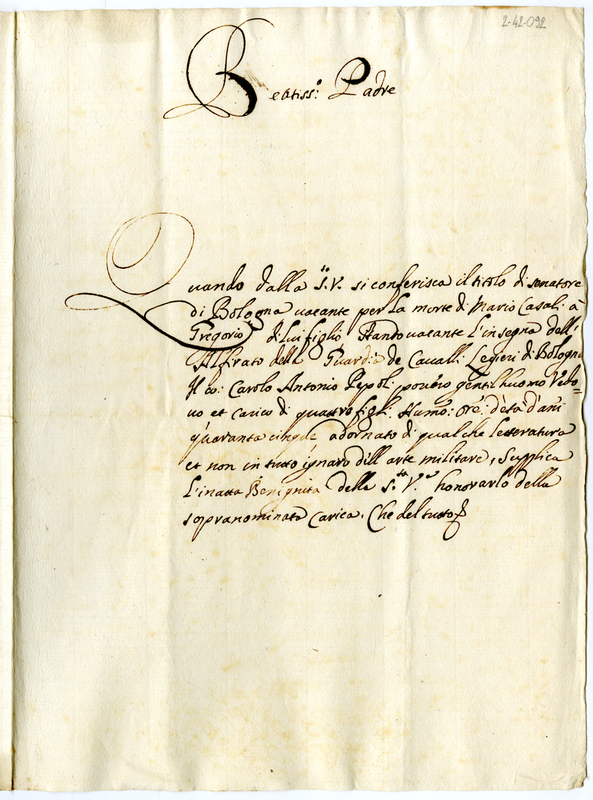 2-42-092
Beatiss:o Padre
Quando dalla S.tà V. si conferisca il titolo di senatore
di Bologna vacante per la morte di Mario Casali à
Gregorio di lui figlio stando vacante l'insegna dell'
Alfirato della Guardia de Cavall: Legieri di Bologna
Il Co: Carolo Antonio Pepoli povero gentilhuomo Vedo=
vo et carico di quattro figli: Humo: Ore: d'età d'ani
quaranta adornato di qualche letteratura
et non in tutto ignaro dell arte militare, supplica
L'inatta Benignità della S.tà V.a honorarlo della
sopranominata Carica. Che del tutto